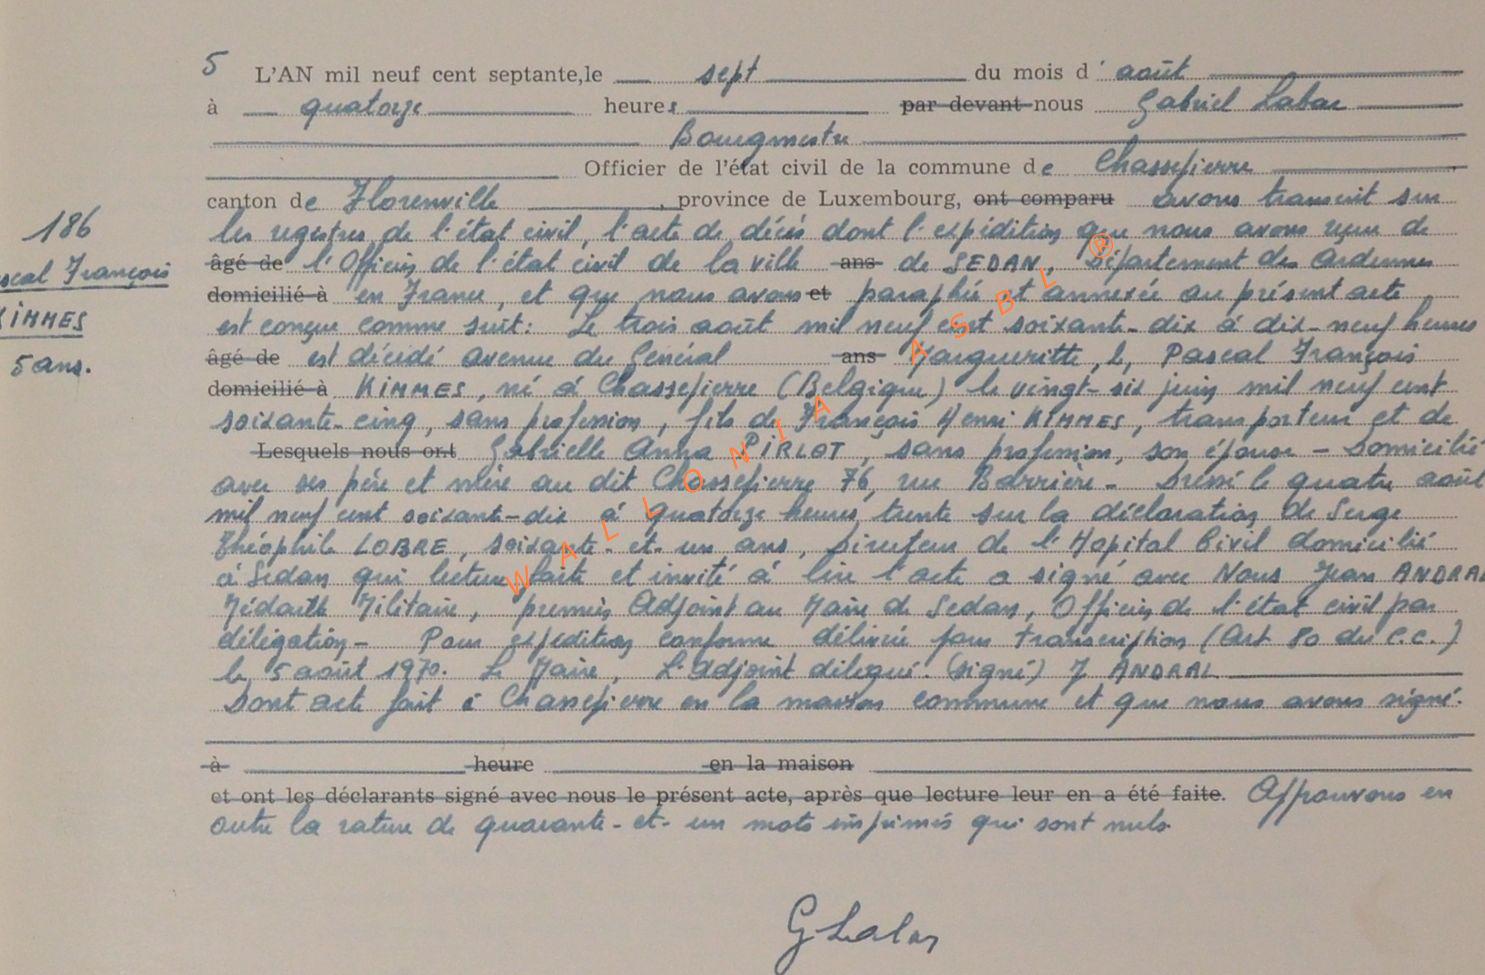 5 L'AN mil neuf cent septante, le sept du mois d'août
à quatorze heures par devant nous Gabriel Labar
Bourgmestre
Officier de l'état civil de la commune de Chassepierre
canton de Florenville, province de Luxembourg, ont comparu avons transcrit sur
186
les registres de l'état civil, l'acte de décès dont l'expédition que nous avons reçue de
âgé de l'Officier de l'état civil de la ville ans de SEDAN, Département des Ardennes
scal François
domicilié à en France, et que nous avons et paraphée et annexée au présent acte
KIMMES
est conçue comme suit: Le trois août mil neuf cent soixante-dix à dix-neuf heures
5 ans.
âgé de est décédé avenue du Général ans Margueritte, 2, Pascal François
domicilié à KIMMES, né à Chassepierre (Belgique) le vingt-six juin mil neuf cent
soixante-cinq, sans profession, fils de François Henri KIMMES, transporteur et de
Lesquels nous ont Gabrielle Anna PIRLOT, sans profession, son épouse - Domicilié
avec ses père et mère au dit Chassepierre 76, rue Barrière - Dressé le quatre août
mil neuf cent soixante-dix à quatorze heures trente sur la déclaration de Serge
Théophile LOBRE, soixante-et-un ans, Directeur de l'Hopital Civil domicilié
à Sedan qui lecture faite et invité à lire l'acte a signé avec Nous Jean ANDRAL
Médaille Militaire, premier Adjoint au Maire de Sedan, Officier de l'état civil par
délégation - Pour expédition conforme délivrée pour transcription (Art 80 du C.C.)
le 5 août 1970. Le Maire, L'Adjoint délégué. (signé) J ANDRAL
Dont acte fait à Chassepierre en la maison commune et que nous avons signé.
à heure en la maison
et ont les déclarants signé avec nous le présent acte, après que lecture leur en a été faite. Approuvons en
outre la rature de quarante-et-un mots imprimés qui sont nuls.
G Labar
WALLONIA ASBL ®